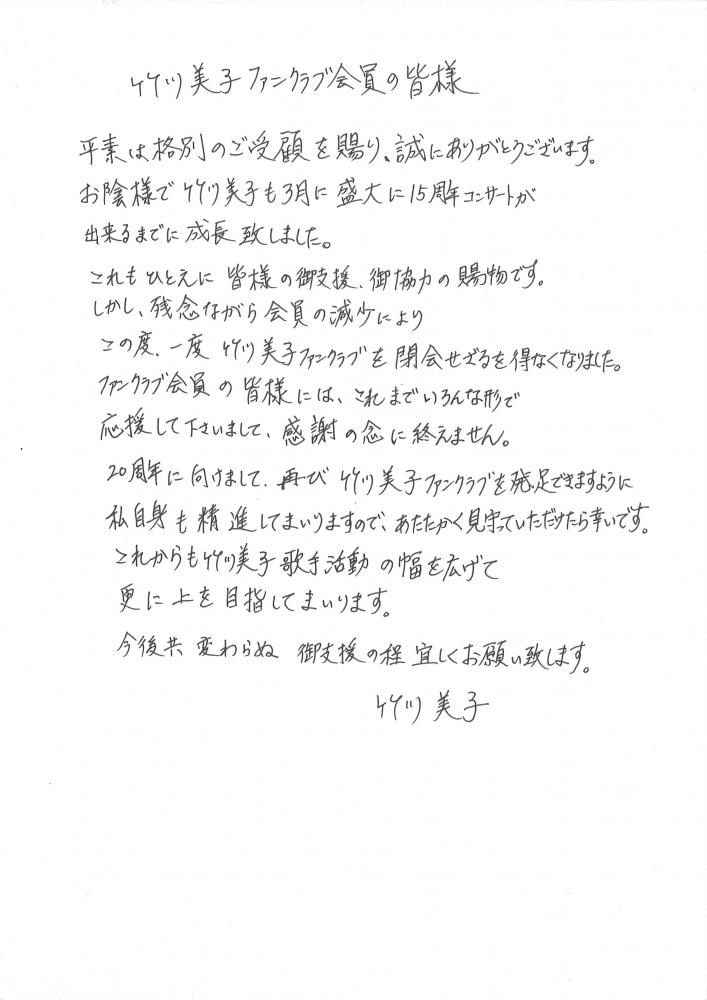 竹川美子ファンクラブ会員の皆様
平素は格別のご受顧を賜り、誠にありがとうございます。
お陰様で竹川美子も3月に盛大に15周年コンサートが
出来るまでに成長致しました。
これもひとえに皆様の御支援、御協力の賜物です。
しかし、残念ながら会員の減少により
この度、一度竹川美子ファンクラブを閉会せざるを得なくなりました。
ファンクラブ会員の皆様には、これまでいろんな形で
応援して下さいまして、感謝の念に終えません。
20周年に向けまして、再び竹川美子ファンクラブを発足できますように
私自身も精進してまいりますので、あたたかく見守っていただけたら幸いです。
これからも竹川美子歌手活動の幅を広げて
更に上を目指してまいります。
今後共変わらぬ御支援の程宜しくお願い致します。
竹川美子